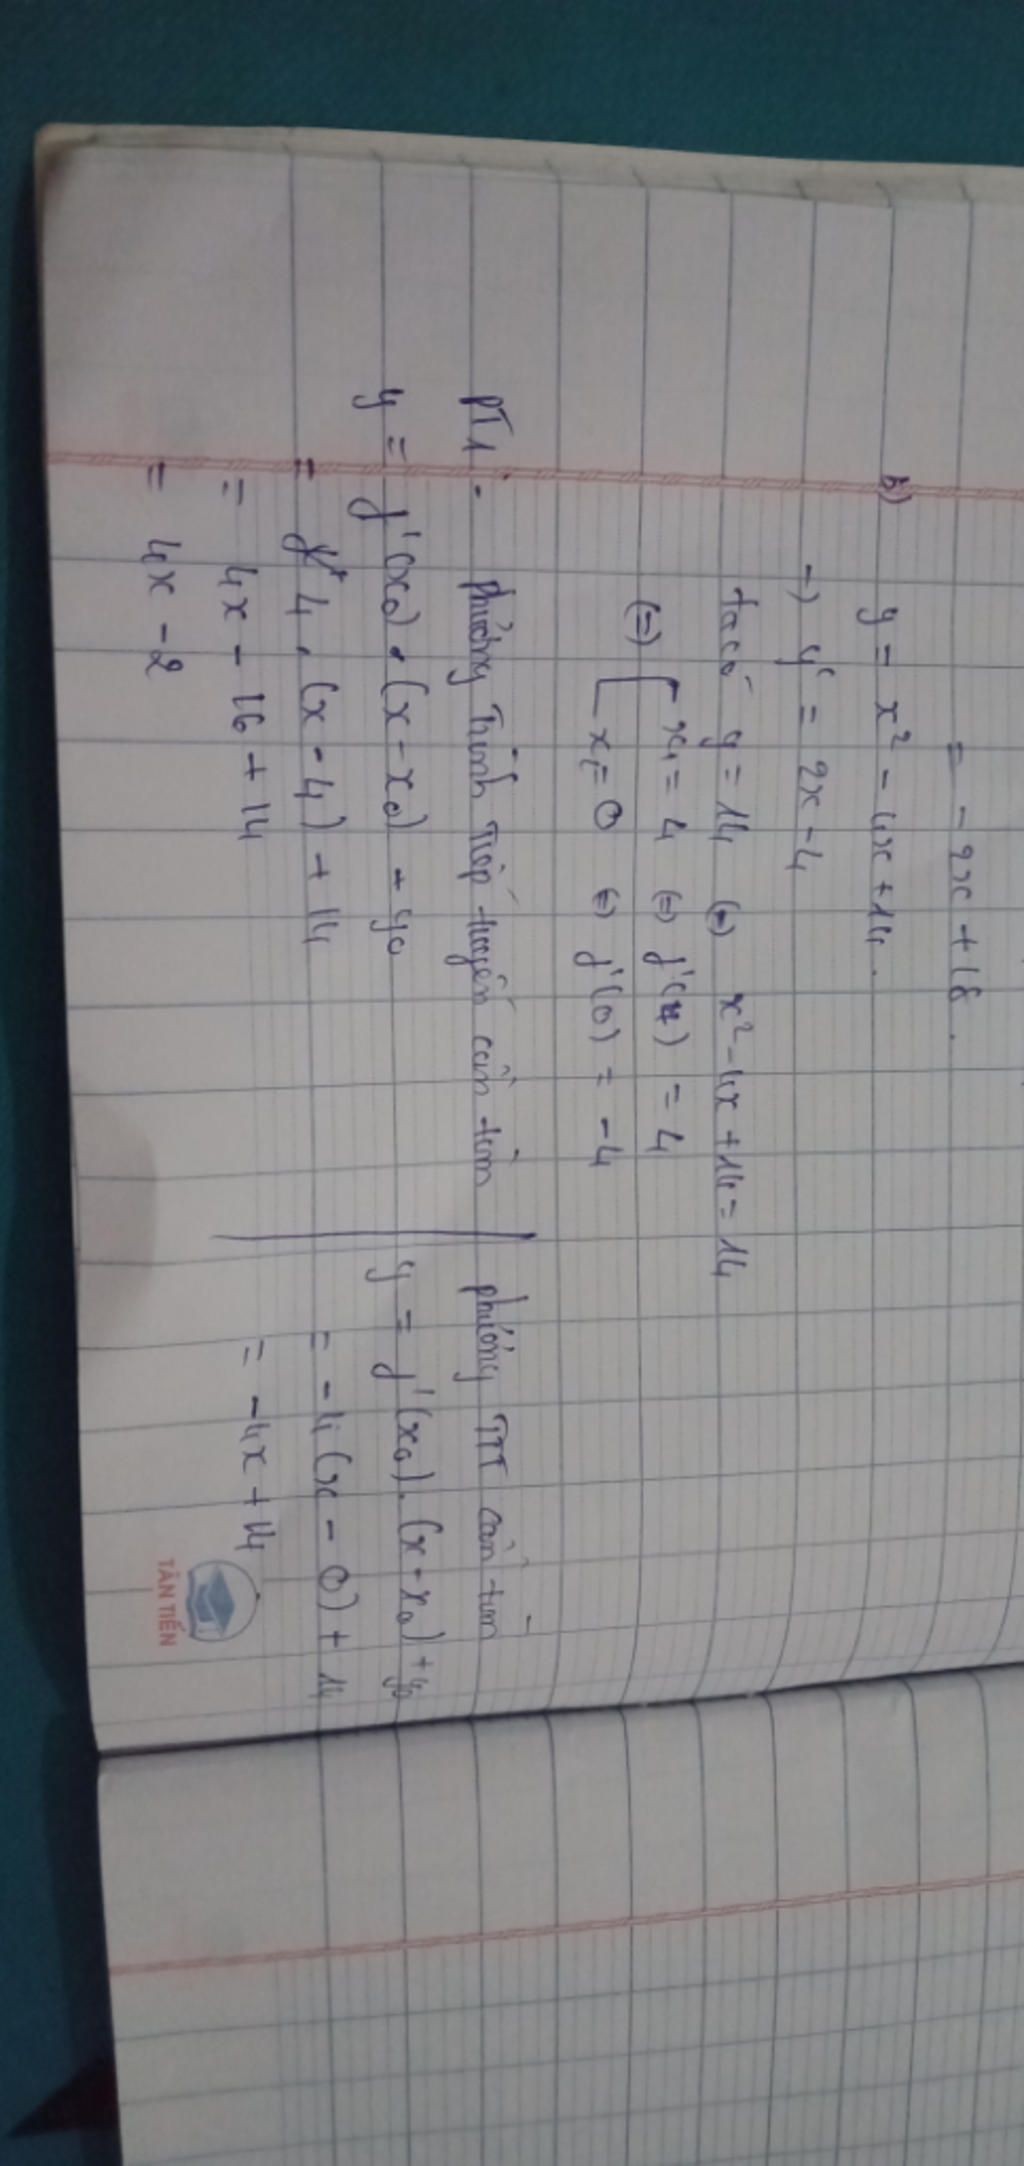 = -2x + 18.
b) y = x² - 4x + 14.
→ y' = 2x - 4
ta có y = 14 (=) x² - 4x + 14 = 14
(=) [ x₁ = 4 (=) f'(4) = 4
x₂ = 0 (=) f'(0) = -4
PT1: phương Trình Tiếp tuyến cần tìm
y = f'(x₀).(x - x₀) + y₀
= 4.(x - 4) + 14
= 4x - 16 + 14
= 4x - 2
phương TTT cần tìm
y = f'(x₀).(x - x₀) + y₀
= -4(x - 0) + 14
= -4x + 14
TÂN TIẾN